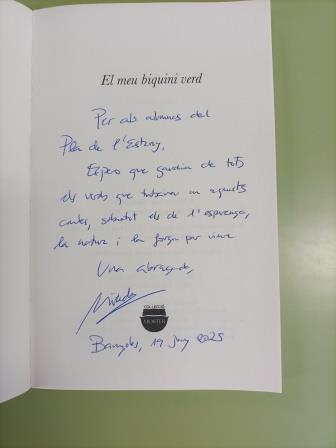 El meu biquini verd
Per als alumnes del
Pla de l'Estany,
Espero que gaudiu de tots
els verds que trobareu en aquests
contes, sobretot els de l'esperança,
la natura i la força per viure
Una abraçada,
COL·LECCIÓ
MOSTER
Banyoles, 19 juny 2025